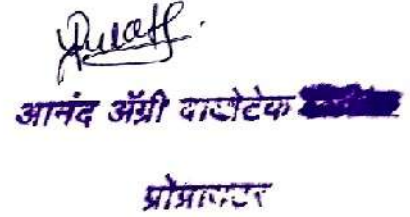 आनंद ॲग्री बायोटेक
प्रोप्रायटर